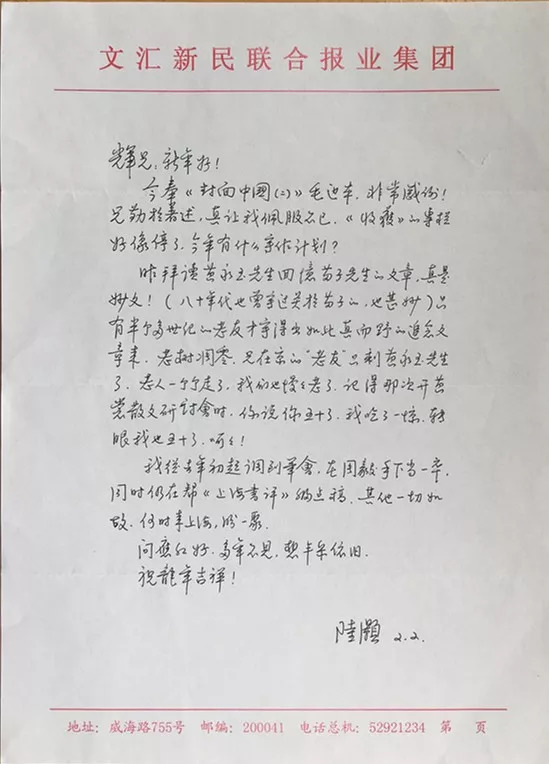 文汇新民联合报业集团
辉兄：新年好！
今奉《封面中國(二)》毛边本，非常感谢！
兄勤於著述，真让我佩服不已。《收穫》的專栏
好像停了，今年有什么寫作计划？
昨拜读黄永玉先生回憶苗子先生的文章，真是
妙文！（八十年代也曾寫过关於苗子的，也甚妙）只
有半个多世纪的老友才寫得出如此真而野的追念文
章来。老树凋零，兄在京的“老友”只剩黄永玉先生
了。老人一个个走了，我们也慢慢老了。记得那次开黄
裳散文研討會时，你说你五十了，我吃了一惊，转
眼我也五十了，呵呵！
我从去年初起调到筆會，在周毅手下当一卒，
同时仍在帮《上海書评》编点稿，其他一切如
故。何时来上海，盼一聚。
问應红好，多年不见，想丰采依旧。
祝龍年吉祥！
陸灝 2.2.
地址：威海路755号 邮编：200041 电话总机：52921234 第 页